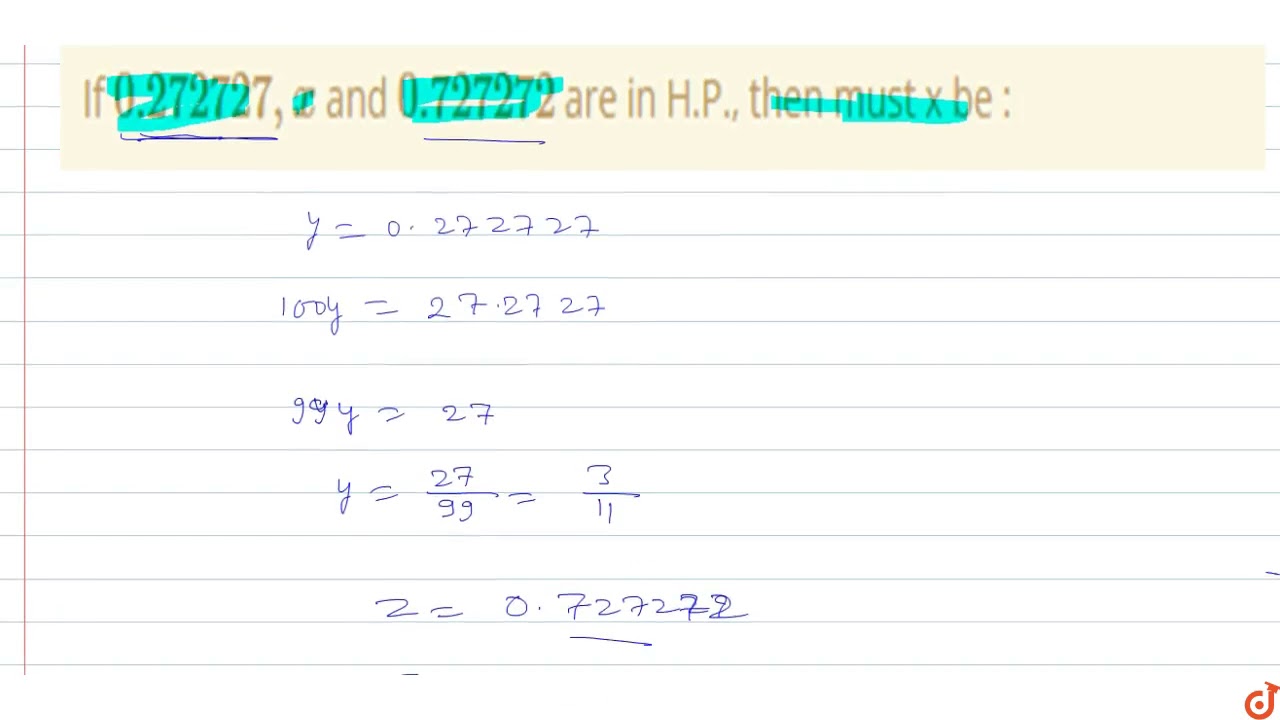 If 0.272727, x and 0.727272 are in H.P., then must x be :
y = 0.272727
100y = 27.2727
99y = 27
y = 27/99 = 3/11
z = 0.727272